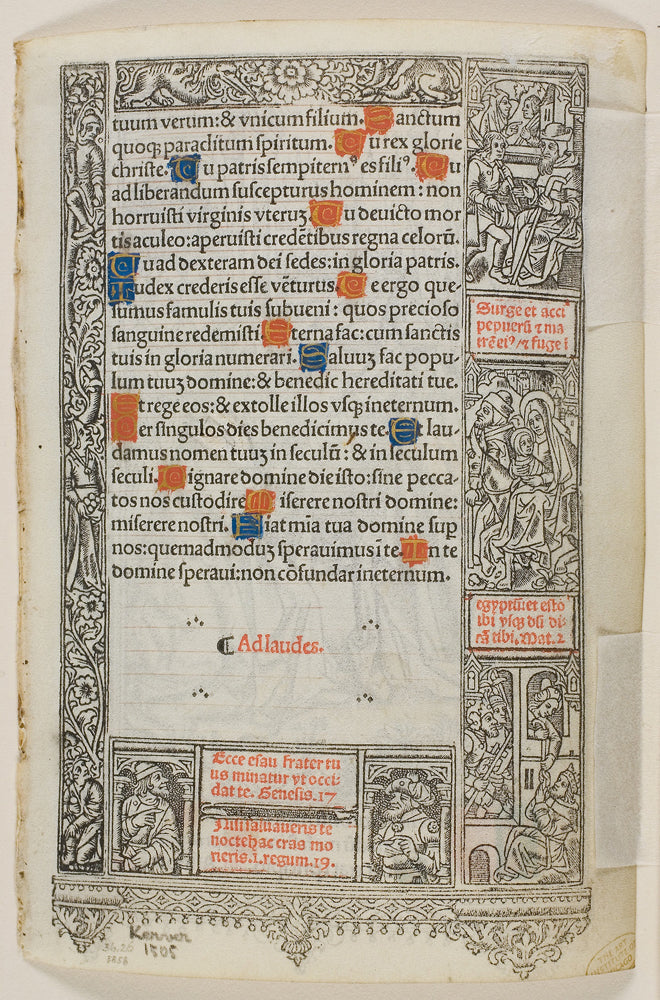 tuum verum: & vnicum filium. Sanctum
quoqꝫ paraclitum spiritum. Tu rex glorie
christe. Tu patris sempiternꝰ es filiꝰ. Tu
ad liberandum suscepturus hominem: non
horruisti virginis vteruꝫ. Tu deuicto mor
tis aculeo: aperuisti credẽtibus regna celorũ.
Tu ad dexteram dei sedes: in gloria patris.
Iudex crederis esse vẽturus. Te ergo que-
sumus famulis tuis subueni: quos precioso
sanguine redemisti. Eterna fac: cum sanctis
tuis in gloria numerari. Saluuꝫ fac popu-
lum tuuꝫ domine: & benedic hereditati tue.
Et rege eos: & extolle illos vsqꝫ ineternum.
Per singulos dies benedicimus te. Et lau-
damus nomen tuuꝫ in seculũ: & in seculum
seculi. Dignare domine die isto: sine pecca-
to nos custodire. Miserere nostri domine:
miserere nostri. Fiat mĩa tua domine sup
nos: quemadmoduꝫ sperauimus ĩ te. In te
domine speraui: non cõfundar ineternum.
¶ Ad laudes.
Surge et acci
pe puerũ ⁊ ma
trẽ eiꝰ / ⁊ fuge ĩ
egyptũ et esto
ibi vsqꝫ dũ di-
cã tibi. Mat. 2
Ecce esau frater tu
us minatur vt occi-
dat te. Genesis. 17
Nisi saluaueris te
nocte hac cras mo
rieris. 1. regum. 19.
Kerver
1505